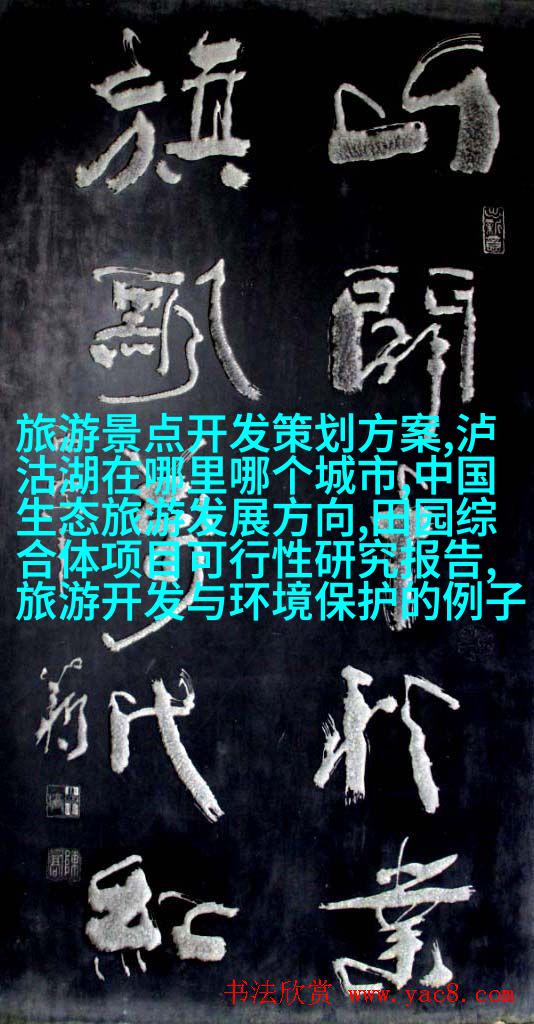 山開千秋業
旗飄萬代紅
旅游景点开发策划方案,泸
沽湖在哪里哪个城市,中国
生态旅游发展方向,田园综
合体项目可行性研究报告,
旅游开发与环境保护的例子
书法欣赏 www.yac8.com